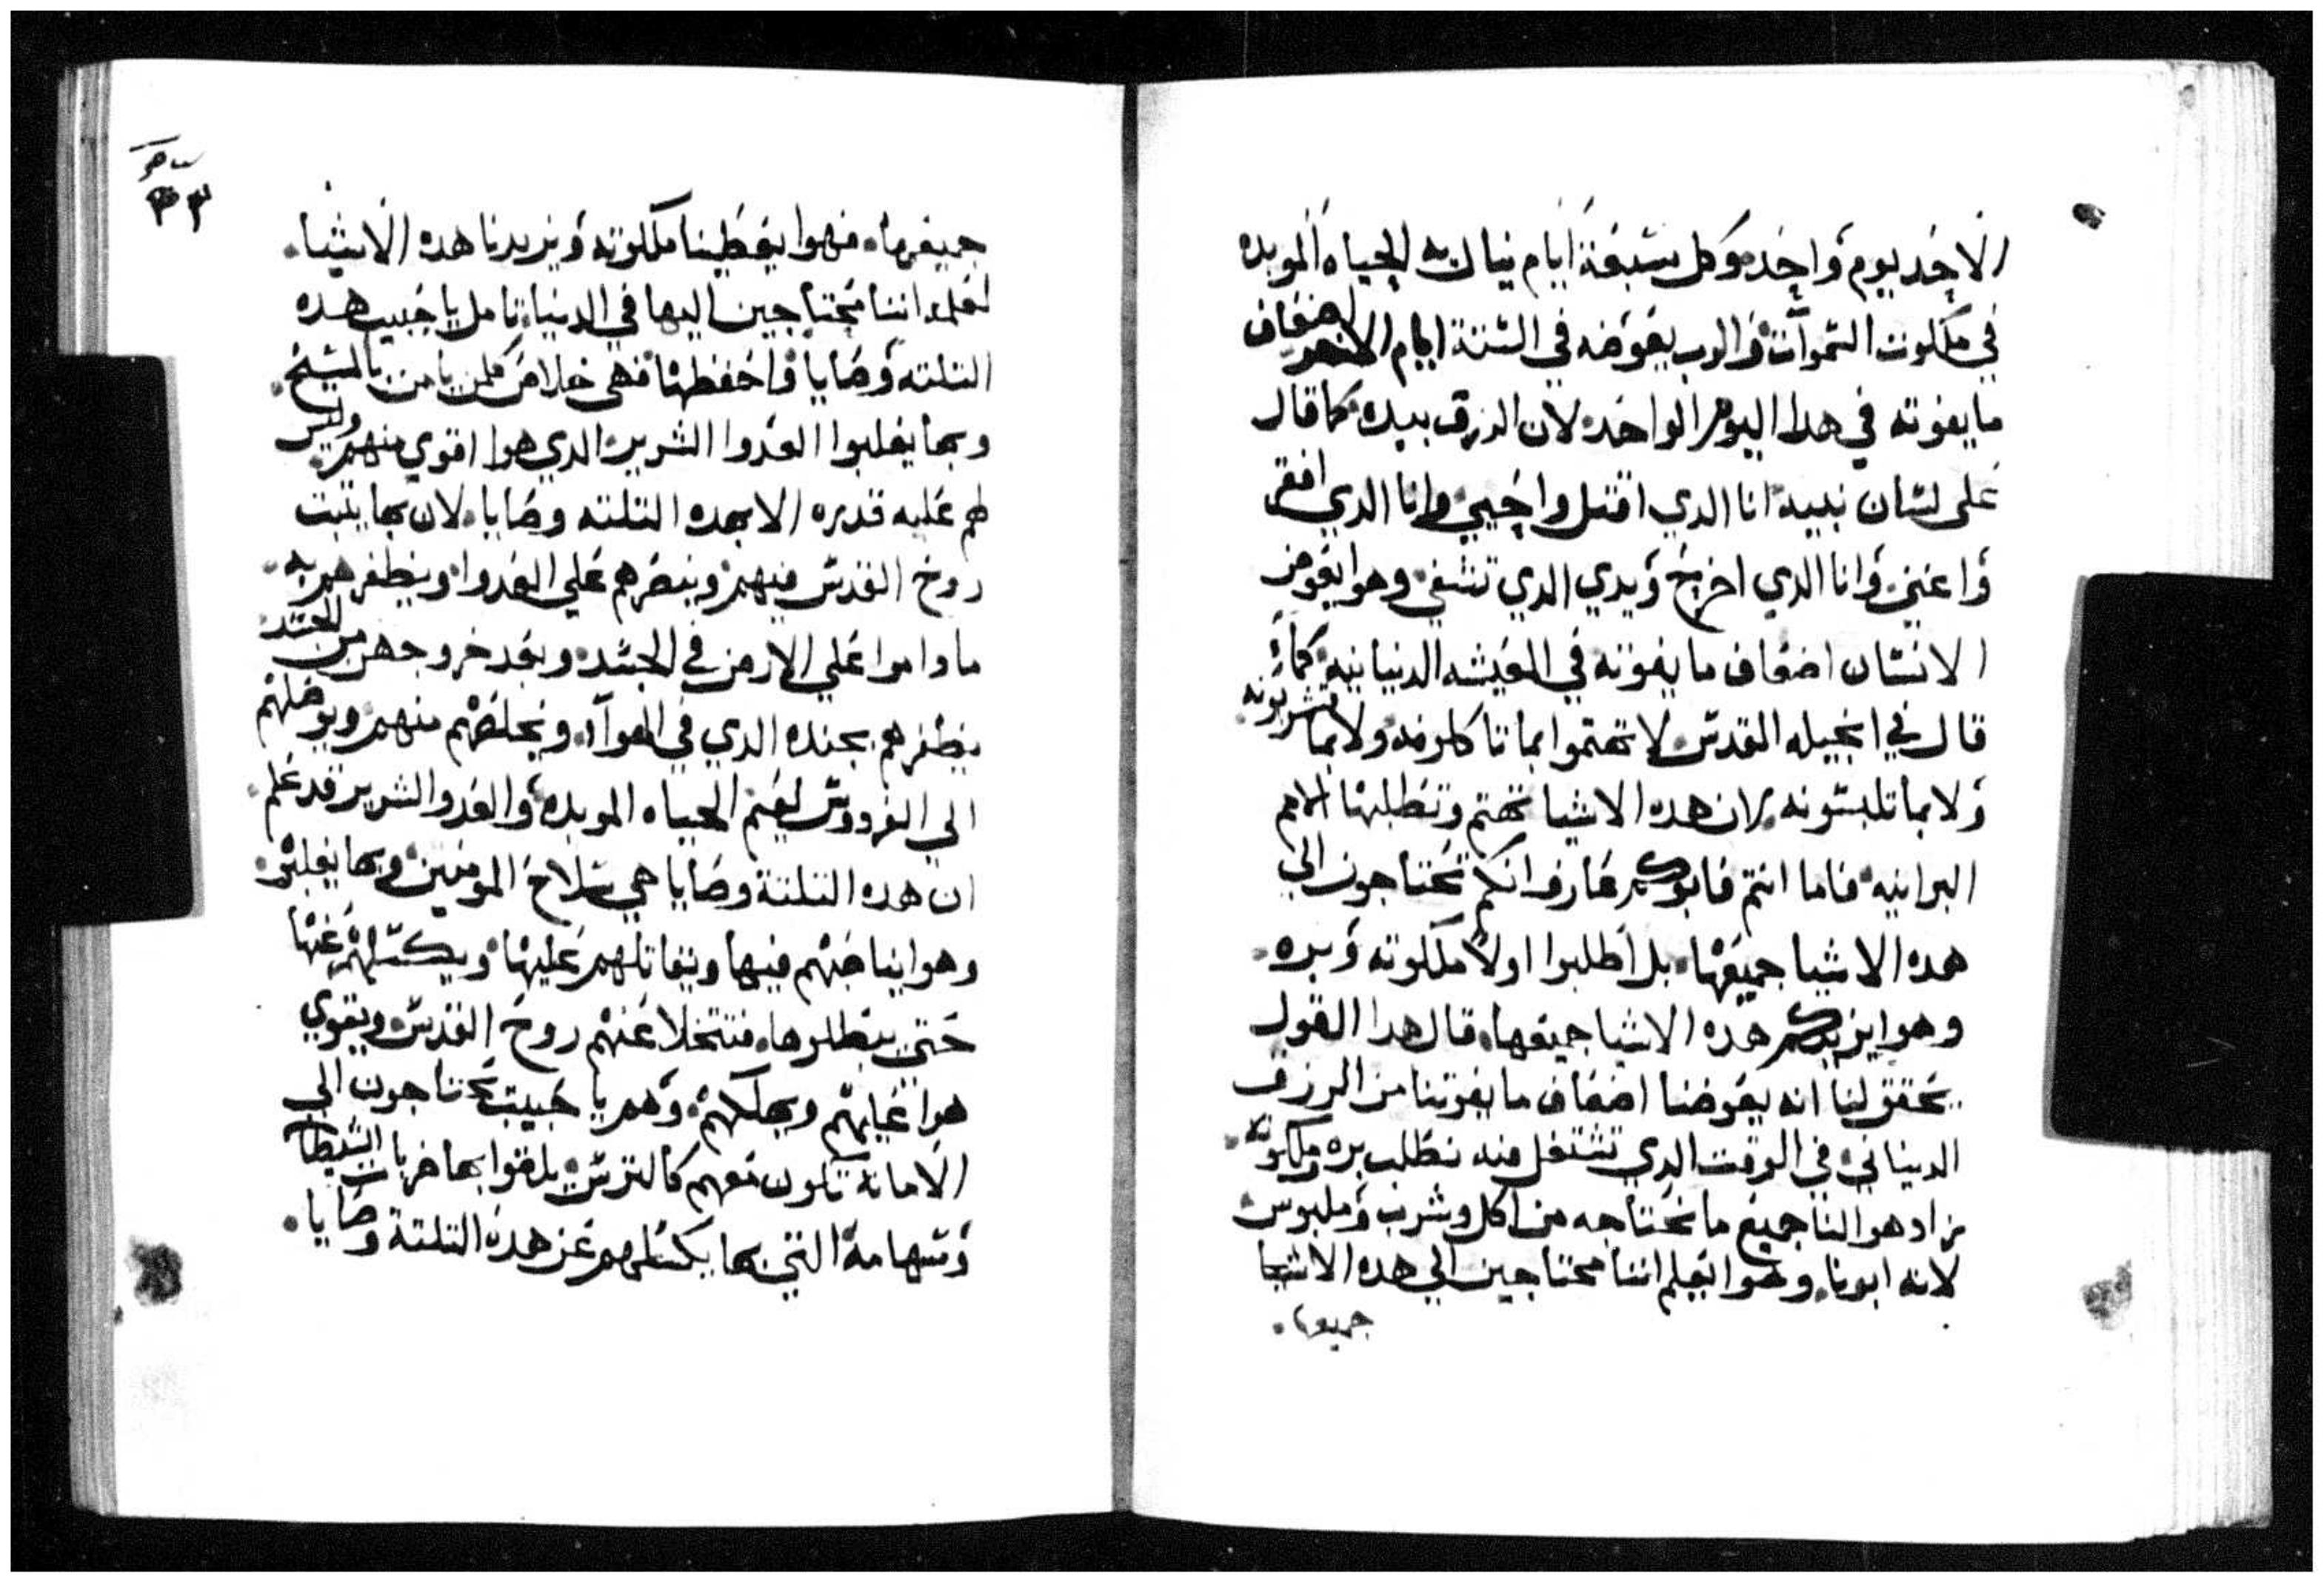 الاحد يوم واحد وكل سبعة ايام ينال به الحياه الموبده
في ملكوت السموات والرب يعوضه في الستة ايام الاخر اضعاف
ما يفوته في هدا اليوم الواحد لان الرزق بيده كما قال
على لسان نبيه انا الدي اقتل واحيي وانا الدي افقر
واغني وانا الدي اخرج ويدي الدي تشفي وهوا يعوض
الانسان اضعاف ما يفوته في العيشه الدنيانيه كما
قال في انجيله القدس لا تهتموا بما تاكلونه ولا بما تشربونه
ولا بما تلبسونه لان هده الاشيا تهتم وتطلبها الامم
البرانيه فاما انتم فابوكم عارف انكم تحتاجون الي
هده الاشيا جميعها بل اطلبوا اولا ملكوته وبره
وهوا يزيدكم هده الاشيا جميعها قال هدا القول
يحقق لنا انه يعوضنا اضعاف ما يفوتنا من الرزق
الدنياني في الوقت الدي نشتغل فيه نطلب بره وملكوته
زاد هوا لنا جميع ما نحتاجه من اكل وشرب وملبوس
لانه ابونا وهوا يعلم اننا محتاجين الي هده الاشيا
جميعها
٣٣
جميعها فهوا يعطينا ملكوته ويزيدنا هده الاشيا
لعلمه اننا محتاجين اليها في الدنيا تامل يا حبيب هده
التلته وصايا واحفظها فهي خلاص كلمن يامن بالمسيح
وبها يغلبوا العدوا الشرير الدي هوا اقوي منهم وليس
لهم عليه قدره الا بهده التلته وصايا لان بها يتبت
روح القدس فيهم وينصرهم علي العدوا ويظفرهم به
ما داموا علي الارض في الجسد وبعد خروجهم من الجسد
يظفرهم بجنده الدي في الهوآ ويخلصهم منهم ويوصلهم
الي الفردوس لنعيم الحياه الموبده والعدو الشرير قد علم
ان هده التلتة وصايا هي سلاح المومنين وبها يغلبوه
وهوا يناصبهم فيها ويقاتلهم عليها ويكسلهم عنها
حتي يبطلوها فتتخلا عنهم روح القدس ويقوي
هوا عليهم ويهلكهم وهم يا حبيب تحتاجون الي
الامانة تكون معهم كالترس يلقوا بها ضربات الشيطان
وسهامه التي بها يكسلهم عن هده التلتة وصايا